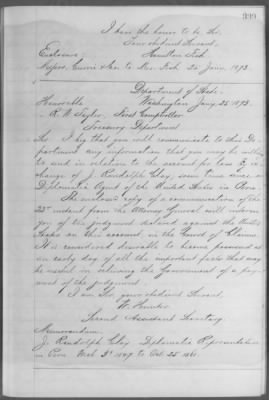 939
I have the honor to be Sir
Your obedient Servant,
Hamilton Fish
Enclosure:
Messrs. to Mr. Fish 20 June, 1873.
Department of State
Washington June, 25 1873.
Honorable
R. W. Tayler, First Comptroller
Treasury Department
Sir. I beg that you will communicate to this De
partment any information that you may be enabled
to send in relation to the account for loss by ex
change of J. Randolph Clay, some time since a
Diplomatic Agent of the United States in Peru.
The enclosed copy of a communication of the
23d instant from the Attorney General will inform
you of the judgment obtained against the United
States on this account in the Court of Claims.
It is considered desirable to become possessed at
an early day of all the important facts that may
be useful in relieving the Government of a pay
ment of the judgment.
I am Sir your obedient Servant,
W. Hunter
Second Assistant Secretary.
Memorandum.
J. Randolph Clay. Diplomatic Representative
in Peru Mch 3d 1847 to Oct 25 1860.